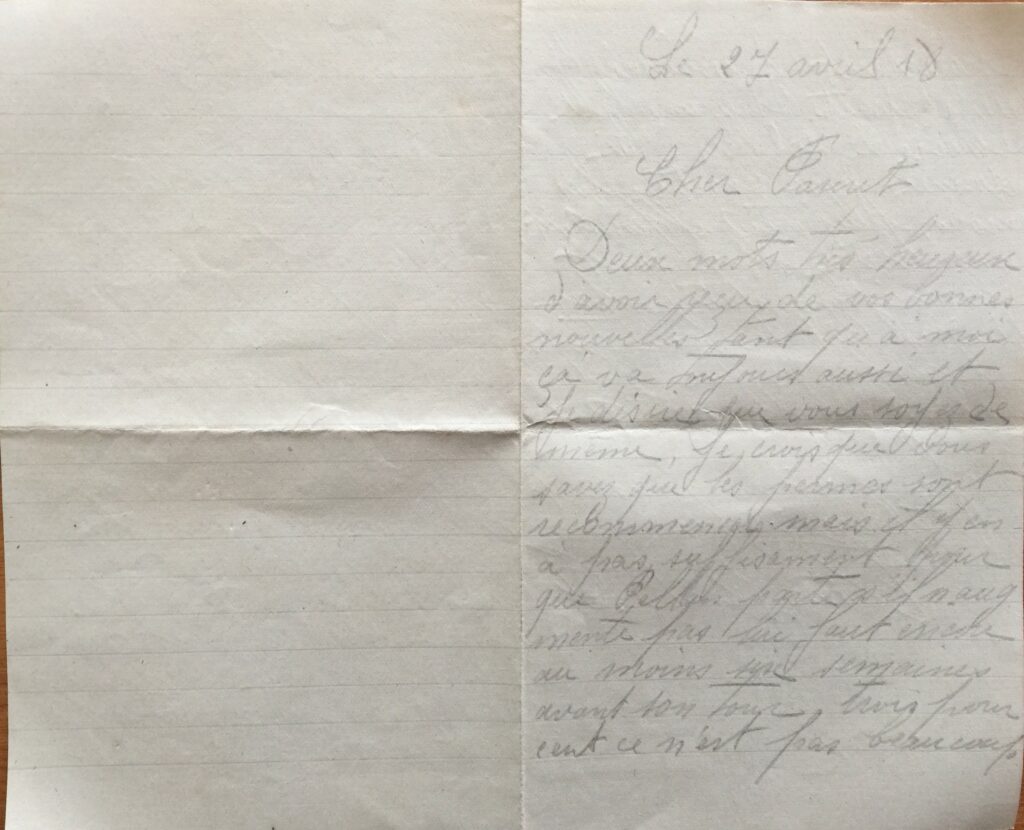 Le 27 avril 18
Cher
Deux mots très heureux
d'avoir reçu de vos bonnes
nouvelles tant qu'a moi
ça va toujours aussi et
je désire que vous soyez de
même, je crois que vous
savez que les permes sont
recommencés mais il y en
à pas suffisament pour
que parte si n'aug
mente pas lui faut encore
au moins six semaines
avant son tour, trois pour
cent ce n'est pas beaucoup